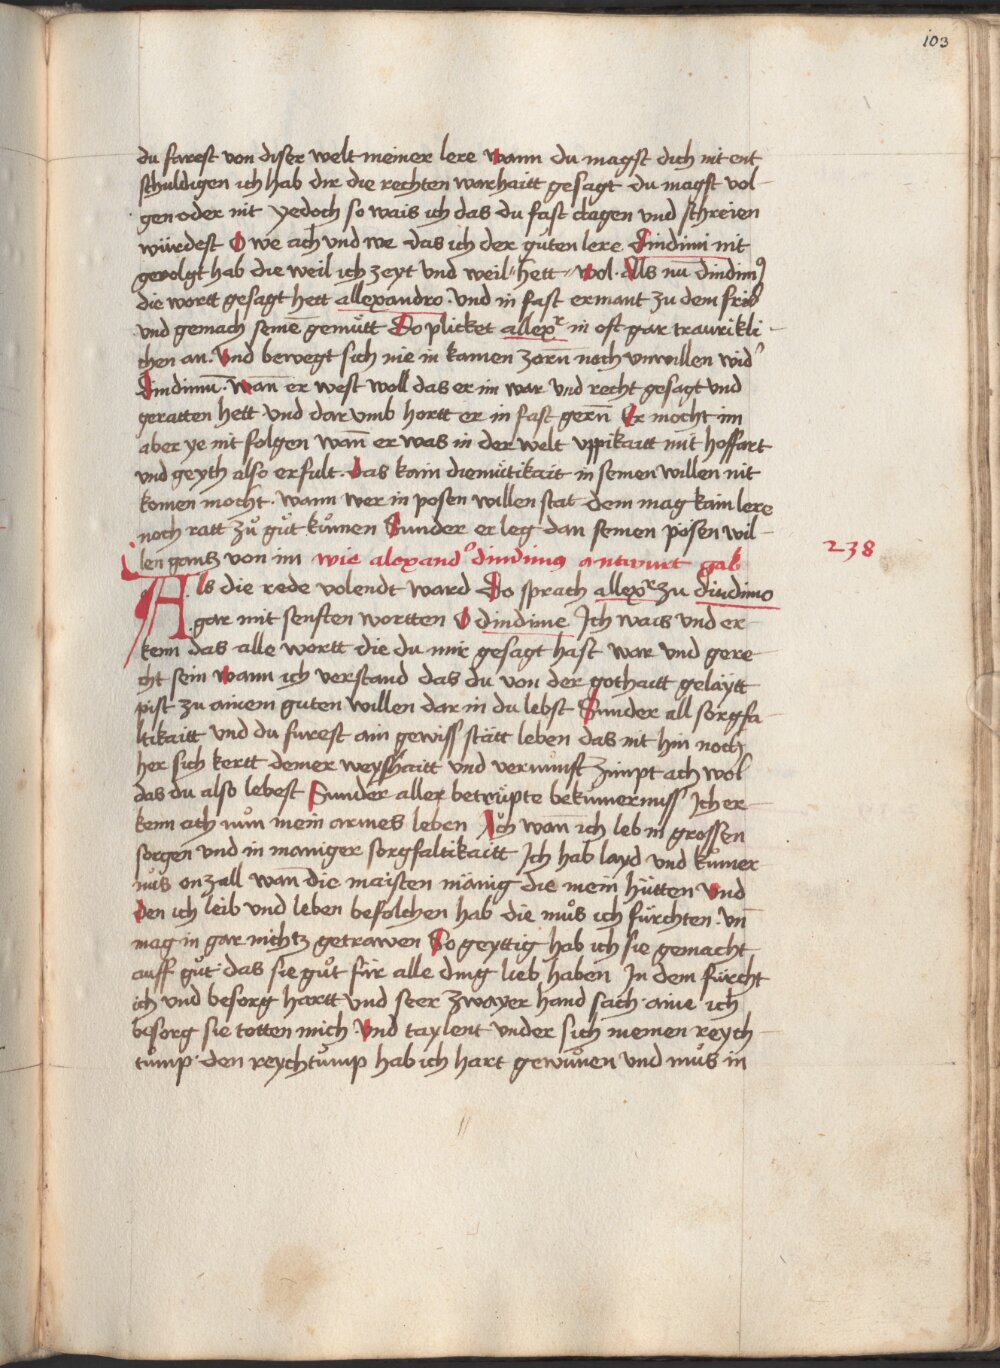 103
du farest von diser welt meiner lere wann du magst dich nit ent
schuldigen ich hab dir die rechten warhaitt gesagt du magst vol-
gen oder nit yedoch so wais ich das du fast clagen und schreien
würdest O we ach und we das ich der guten lere Dindimi nit
gevolgt hab die weil ich zeyt und weil hett wol. Als nu dindimꝰ
die wortt gesagt hett allexandro. und in fast ermant zu dem frid
und gemach seinē gemütt Do plicket allexr in oft gar traurikli-
chen an. Und bewegt sich nie in kainen zorn noch unwillen wid
Dindimū. Wañ er west woll das er im war und recht gesagt und
geratten hett und dar umb hortt er in fast gern Er mocht im
aber ye nit folgen wañ er was in der welt uppikaitt mit hoffart
und geyth also erfult. Das kain diemütikait in seinen willen nit
komen mocht. wann wer in posen willen stat dem mag kain lere
noch ratt zů gůt kumen Sunder er leg dan seinen posen wil-
len gantz von im wie alexandᵒ dindimꝰ antwurt gab
238
Als die rede volendt ward Do sprach allexr zu dindimo
gar mit senften wortten O dindime Ich wais und er-
kenn das alle wortt die du mir gesagt hast war und gere-
cht sein wann ich verstand das du von der gothaitt gelaytt
pist zu ainem guten willen dar in du lebst Sunder all sorgfa-
ltikaitt und du furest ain gewiss stätt leben das nit hin noch
her sich kertt deiner weyshaitt und vernunft zimpt ach wol
das du also lebest Sunder aller betrüpte bekumerniss Ich er-
kenn ach nun mein armes leben Ach wañ ich leb in grossen
sorgen und in maniger sorgfaltikaitt Ich hab layd und kumer-
nus on zall wañ die maisten mänig die mein hütten Und
Den ich leib und leben befolchen hab die můs ich fürchten. uñ
mag in gar nichtz getrawen So geyttig hab ich sie gemacht
auff gůt das sie gůt für alle ding lieb haben In dem fürcht
ich und besorg hartt und seer zwayer hand sach aine ich
besorg sie totten mich Und taylent under sich meinen reych-
tump. den reychtump hab ich hart gewunen und můs in